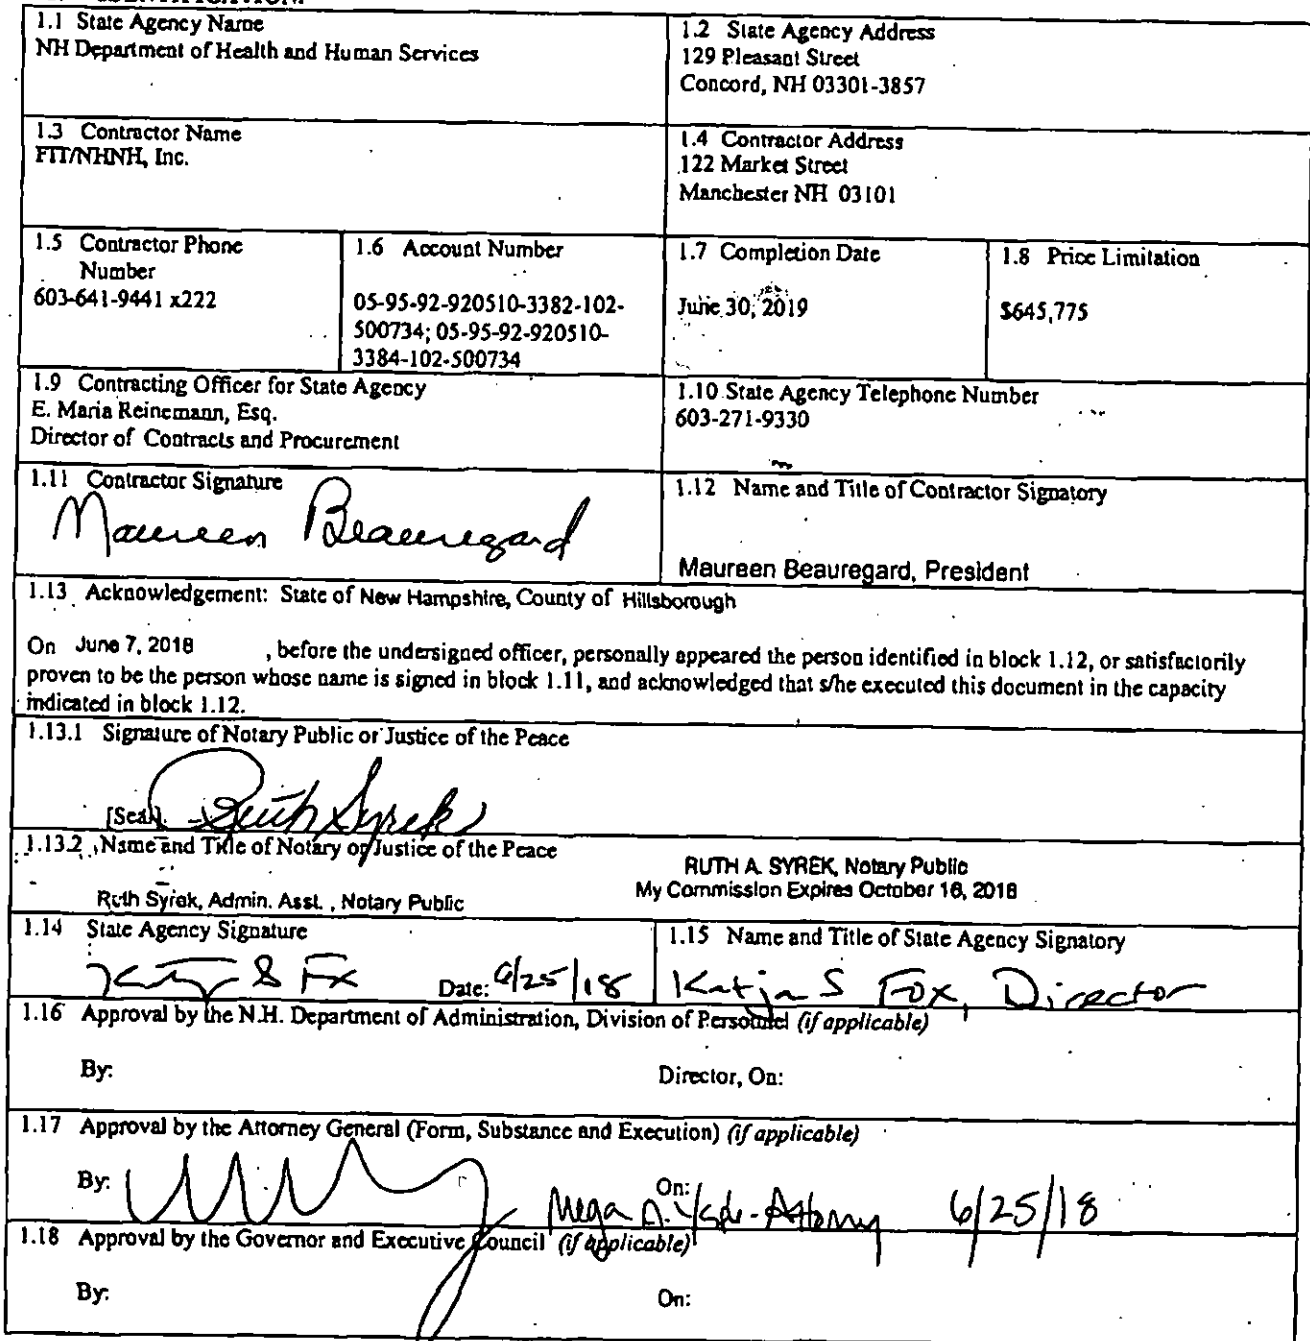 1.1 State Agency Name
NH Department of Health and Human Services
1.2 State Agency Address
129 Pleasant Street
Concord, NH 03301-3857
1.3 Contractor Name
FIT/NHNH, Inc.
1.4 Contractor Address
122 Market Street
Manchester NH 03101
1.5 Contractor Phone
Number
603-641-9441 x222
1.6 Account Number
05-95-92-920510-3382-102-
500734; 05-95-92-920510-
3384-102-500734
1.7 Completion Date
June 30, 2019
1.8 Price Limitation
$645,775
1.9 Contracting Officer for State Agency
E. Maria Reinemann, Esq.
Director of Contracts and Procurement
1.10 State Agency Telephone Number
603-271-9330
1.11 Contractor Signature
Maureen Beauregard
1.12 Name and Title of Contractor Signatory
Maureen Beauregard, President
1.13 Acknowledgement: State of New Hampshire, County of Hillsborough
On June 7, 2018 , before the undersigned officer, personally appeared the person identified in block 1.12, or satisfactorily
proven to be the person whose name is signed in block 1.11, and acknowledged that s/he executed this document in the capacity
indicated in block 1.12.
1.13.1 Signature of Notary Public or Justice of the Peace
[Seal] Ruth Syrek
1.13.2 Name and Title of Notary or Justice of the Peace
RUTH A. SYREK, Notary Public
My Commission Expires October 16, 2018
Ruth Syrek, Admin. Asst. , Notary Public
1.14 State Agency Signature
Date: 6/25/18
1.15 Name and Title of State Agency Signatory
Katja S Fox, Director
1.16 Approval by the N.H. Department of Administration, Division of Personnel (if applicable)
By: Director, On:
1.17 Approval by the Attorney General (Form, Substance and Execution) (if applicable)
By: On: Attorney 6/25/18
1.18 Approval by the Governor and Executive Council (if applicable)
By: On: